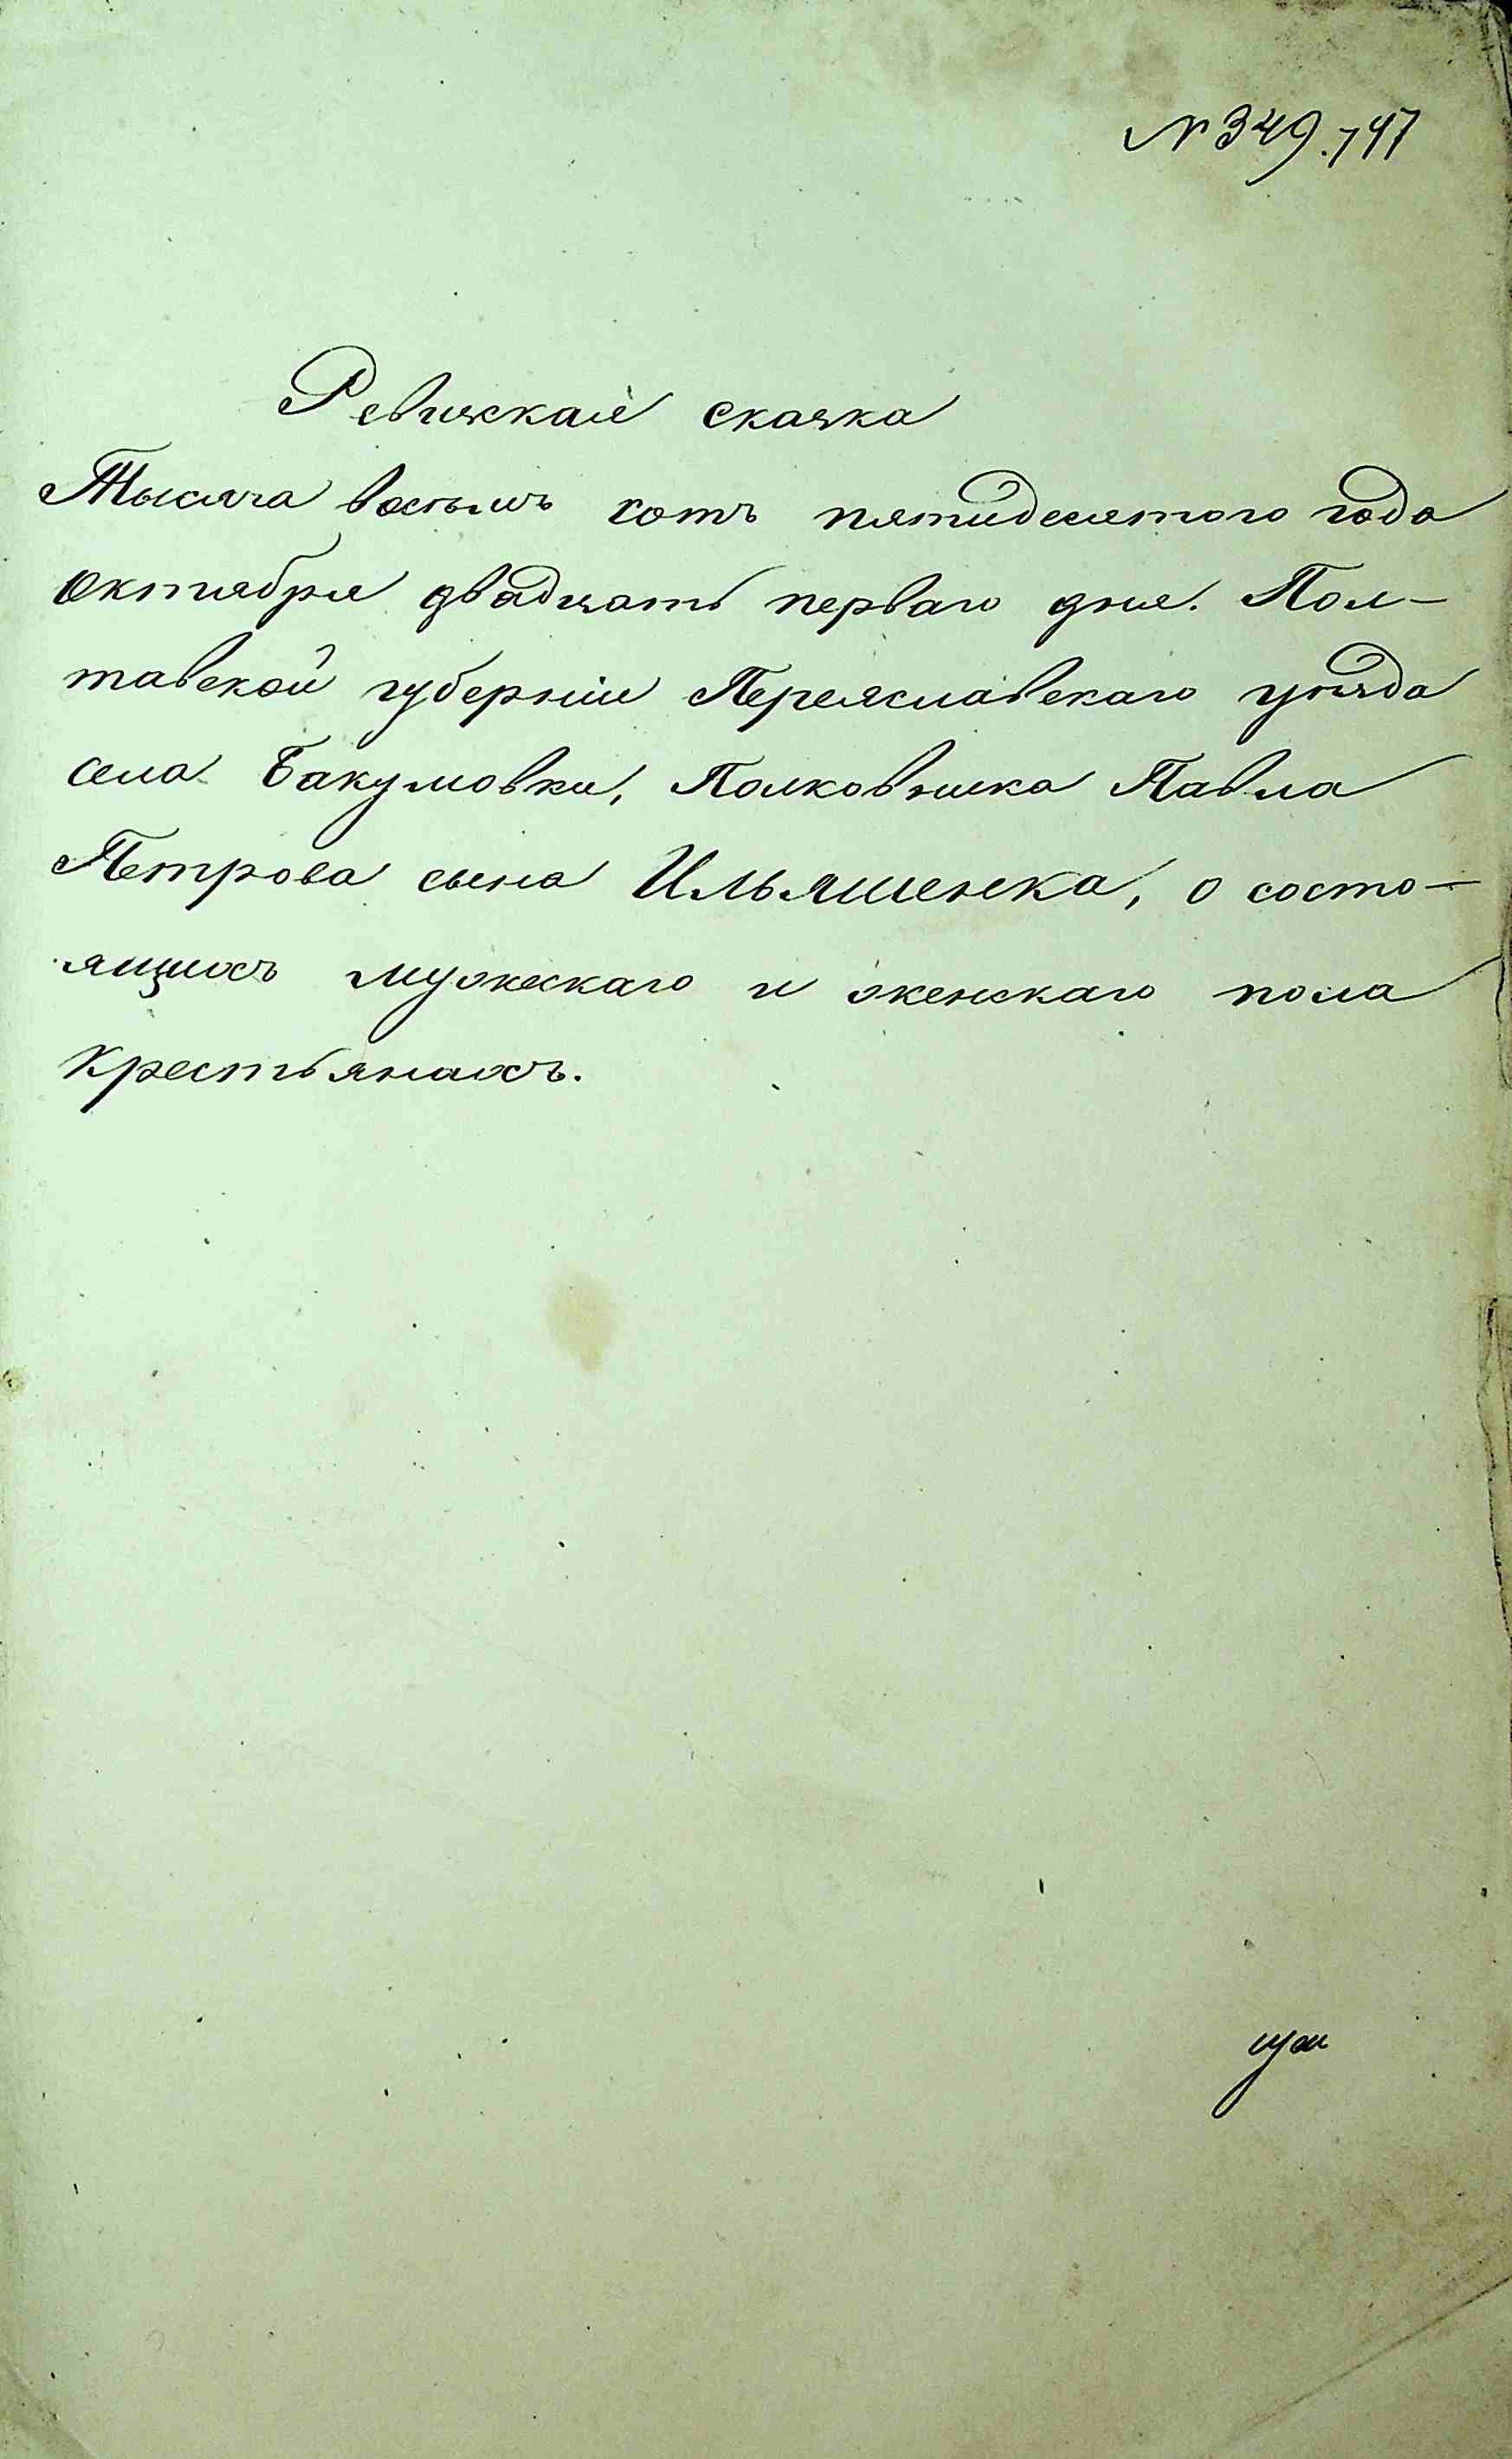 № 349. 747
Ревижская сказка
Тысяча восемь сотъ пятидесятого года
Октября двадцать перваго дня. Пол-
тавской губерніи Переяславскаго уѣзда
села Бакумовки, Полковника Павла
Петрова сына Ильяшенка, о состо-
ящихъ мужескаго и женскаго пола
крестьянахъ.